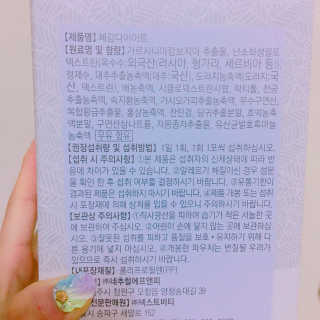 【제품명】 체감다이어트
【원료명 및 함량】 가르시니아캄보지아 추출물, 난소화성말토
덱스트린(옥수수:외국산(러시아, 헝가리, 세르비아 등)),
정제수, 대추추출농축액(대추:국산), 도라지농축액(도라지:국
산, 덱스트린), 배농축액, 시클로덱스트린시럽, 락티톨, 천궁
추출농축액, 숙지황농축액, 가시오가피추출농축액, 무수구연산,
복합황금추출물, 홍삼농축액, 잔탄검, 당귀추출분말, 호박농축
액분말, 구연산삼나트륨, 자몽종자추출물, 유산균발효톡마늘
농축액 우유 함유
【권장섭취량 및 섭취방법】 1일 1회, 1회 1포씩 섭취하십시오.
【섭취 시 주의사항】 ①본 제품은 섭취자의 신체상태에 따라 반
응에 차이가 있을 수 있습니다. ②알레르기 체질이신 경우 성분
을 확인 한 후 섭취 여부를 결정하시기 바랍니다. ③유통기한이
경과된 제품은 섭취하지 마시기 바랍니다. ④제품 개봉 또는 섭취
시 포장재에 의해 상처를 입을 수 있으니 주의하시기 바랍니다.
【보관상 주의사항】 ①직사광선을 피하여 습기가 적은 서늘한 곳
에 보관하여 주십시오. ②어린이 손에 닿지 않는 곳에 보관하여 주
십시오. ③잘못된 섭취를 피하고 품질을 보호•유지하기 위해 다
른 용기에 넣지 마십시오. ④개봉한 파우치는 변질될 우려가
있으므로 즉시 섭취하시기 바랍니다.
【내포장재질】 폴리프로필렌(PP)
㈜네추럴에프앤피
청원구 오창읍 양청송대길 39
전문판매원】 ㈜넥스트뷰티
송파구 새말로 152